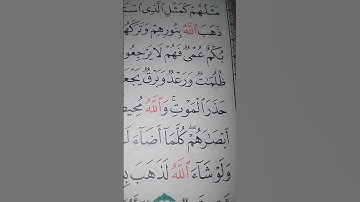 مَثَلُهُمْ كَمَثَلِ ٱلَّذِى
ذَهَبَ ٱللَّهُ بِنُورِهِمْ وَتَرَكَهُ
بُكْمٌ عُمْىٌ فَهُمْ لَا يَرْجِعُو
ظُلُمَٰتٌ وَرَعْدٌ وَبَرْقٌ يَجْعَ
حَذَرَ ٱلْمَوْتِ ۚ وَٱللَّهُ مُحِي
أَبْصَٰرَهُمْ ۖ كُلَّمَآ أَضَآءَ لَ
وَلَوْ شَآءَ ٱللَّهُ لَذَهَبَ بِ